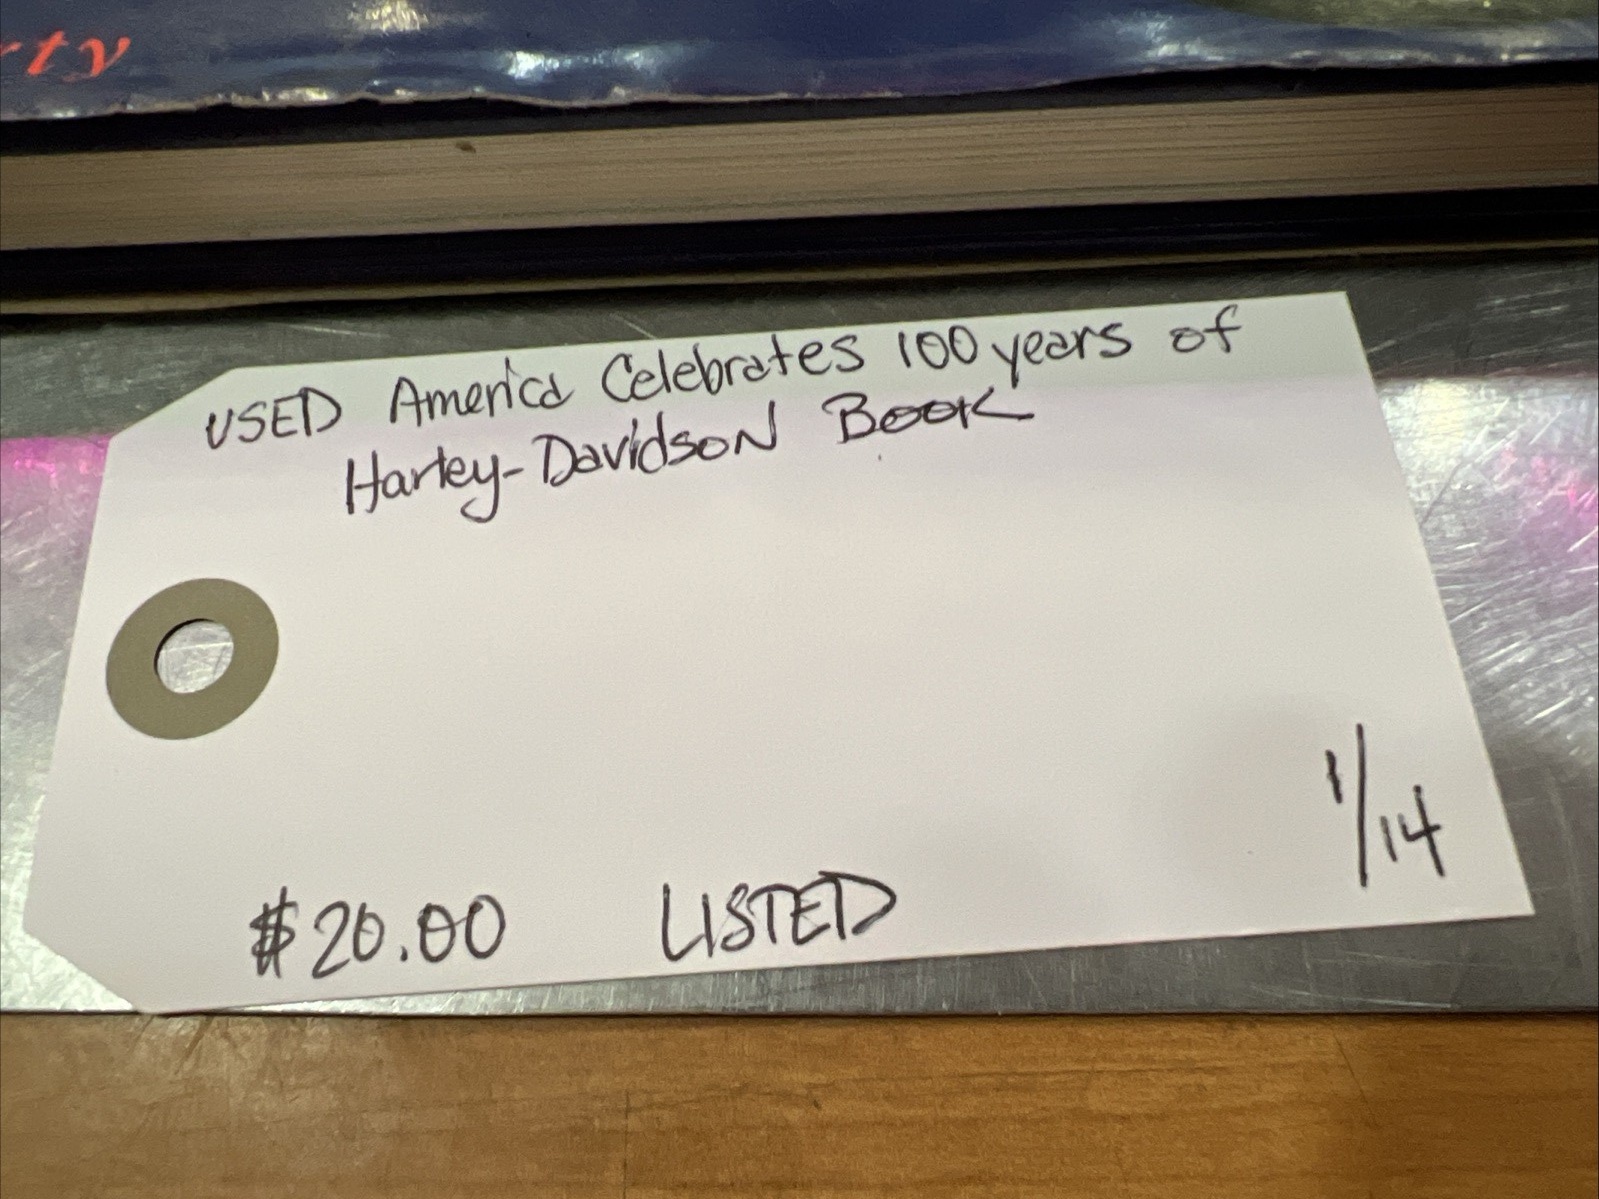 rty
USED America Celebrates 100 years of
Harley-Davidson Book
1/14
$20.00 LISTED